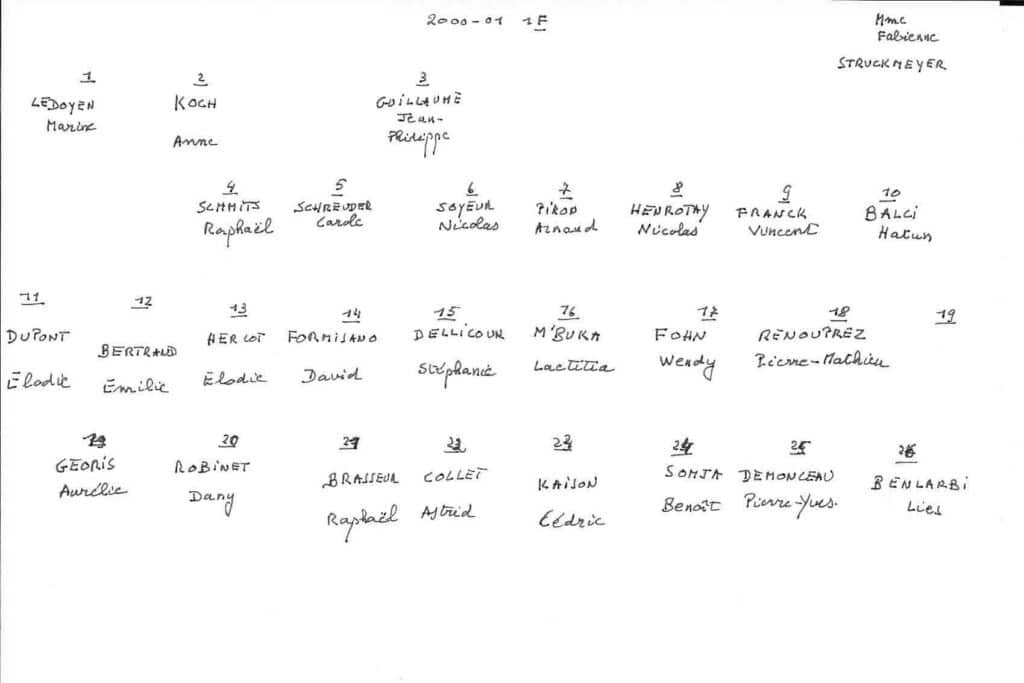 2000-01 1F
Mme
Fabienne
STRUCKMEYER
1 2 3
LEDOYEN KOCH GUILLAUME
Marine Anne Jean-
Philippe
4 5 6 7 8 9 10
SCHMITS SCHREUDER SOYEUR PIROD HENROTAY FRANCK BALCI
Raphaël Carole Nicolas Arnaud Nicolas Vincent Hatun
11 12 13 14 15 16 17 18 19
DUPONT BERTRAND HERCOT FORMISANO DELLICOUR M'BUKA FOHN RENOUPREZ
Élodie Émilie Élodie David Stéphanie Laetitia Wendy Pierre-Mathieu
19 20 21 22 23 24 25 26
GEORIS ROBINET BRASSEUR COLLET KAISON SOMJA DEMONCEAU BENLARBI
Aurélie Dany Raphaël Astrid Cédric Benoît Pierre-Yves. Lies